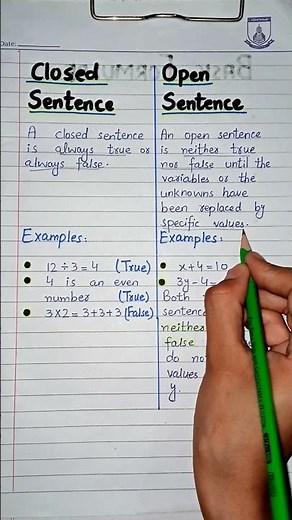 Date:
Closed
Sentence
A closed sentence
is always true or
always false.
Examples:
12 ÷ 3 = 4 (True)
4 is an even
number (True)
3x2 = 3+3+3 (False)
Open
Sentence
An open sentence
is neither true
nor false until the
variables or the
unknowns have
been replaced by
specific values.
Examples:
x + 4 = 10
3y - 4 =
Both
sentence
neither
false
do no
values
y.